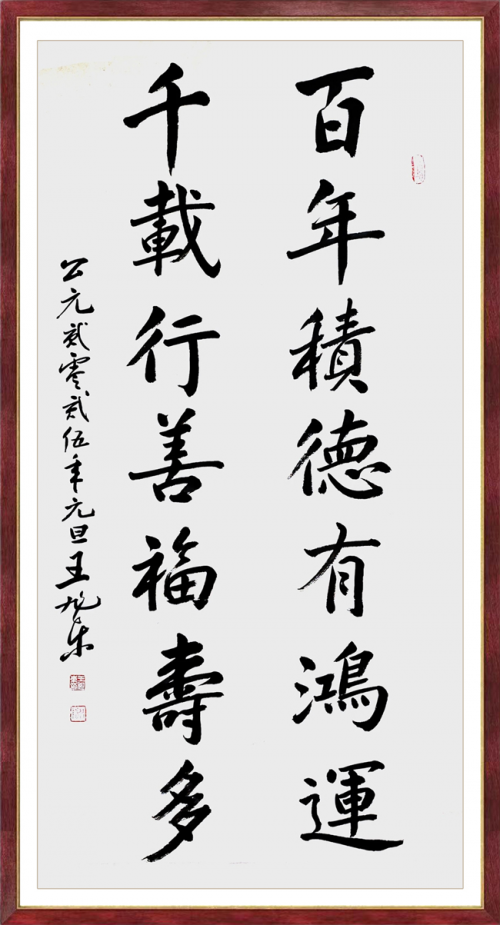 百年積德有鴻運
千載行善福壽多
公元贰零贰伍年元旦王旭东